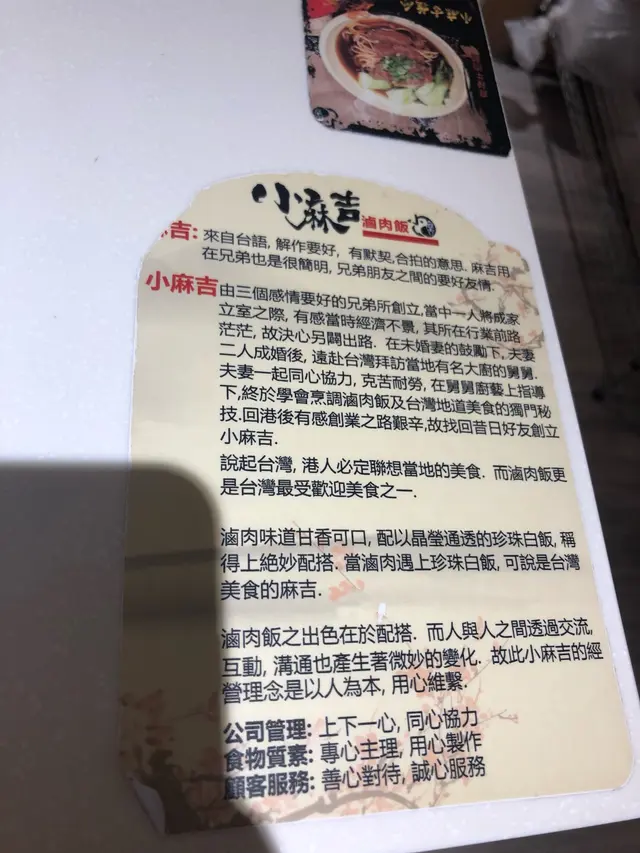 小麻吉 滷肉飯
吉: 來自台語, 解作要好, 有默契,合拍的意思. 麻吉用
在兄弟也是很簡明, 兄弟朋友之間的要好友情.
小麻吉由三個感情要好的兄弟所創立,當中一人將成家
立室之際, 有感當時經濟不景, 其所在行業前路
茫茫, 故決心另闢出路. 在未婚妻的鼓勵下, 夫妻
二人成婚後, 遠赴台灣拜訪當地有名大廚的舅舅.
夫妻一起同心協力, 克苦耐勞, 在舅舅廚藝上指導
下,終於學會烹調滷肉飯及台灣地道美食的獨門秘
技.回港後有感創業之路艱辛,故找回昔日好友創立
小麻吉.
說起台灣, 港人必定聯想當地的美食. 而滷肉飯更
是台灣最受歡迎美食之一.
滷肉味道甘香可口, 配以晶瑩通透的珍珠白飯, 稱
得上絕妙配搭. 當滷肉遇上珍珠白飯, 可說是台灣
美食的麻吉.
滷肉飯之出色在於配搭. 而人與人之間透過交流,
互動, 溝通也產生著微妙的變化. 故此小麻吉的經
營理念是以人為本, 用心維繫.
公司管理: 上下一心, 同心協力
食物質素: 專心主理, 用心製作
顧客服務: 善心對待, 誠心服務